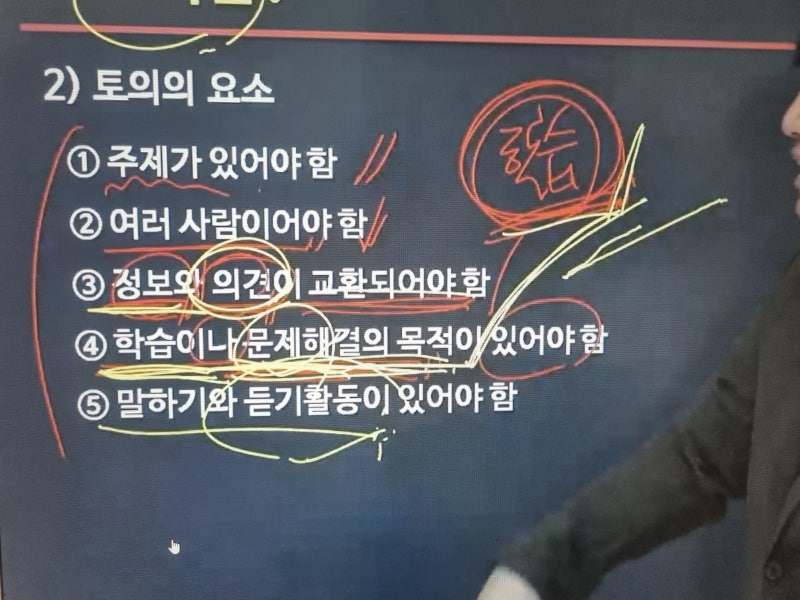 2) 토의의 요소
① 주제가 있어야 함
② 여러 사람이어야 함
③ 정보와 의견이 교환되어야 함
④ 학습이나 문제해결의 목적이 있어야 함
⑤ 말하기와 듣기활동이 있어야 함
학습